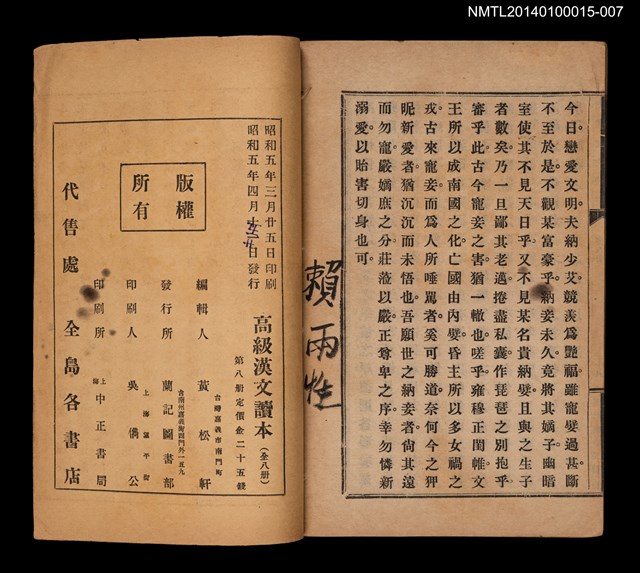 NMTL20140100015-007
今日。戀愛文明。夫納少艾。競羨爲艷福。雖寵嬖過甚。斷
不至於是。不觀某富豪乎。納妾未久。竟將其嫡子幽暗
室。使其不見天日乎。又不見某名貴納嬖。且與之生子
者數矣。乃一旦鄙其老邁。捲盡私囊。作琵琶之別抱乎。
審乎此。古今寵妾之害。猶一轍也。嗟乎。雍穆正閨帷。文
王所以成南國之化。亡國由內嬖。昏主所以多女禍之
戎。古來寵妾而爲人所唾罵者。奚可勝道。奈何今之狎
昵新愛者。猶沉沉而未悟也。吾願世之納妾者。尙其遠
而勿寵。嚴嫡庶之分。莊莅以嚴。正尊卑之序。幸勿憐新
溺愛。以貽害切身也可。
賴雨性
昭和五年三月廿五日印刷
昭和五年四月十日發行
高級漢文讀本(全八册)
第八册定價金二十五錢
版權
所有
台灣嘉義市南門町
編輯人 黃松軒
台南州嘉義街西門外一五九
發行所 蘭記圖書部
印刷人 吳僑公
印刷所 上海中正書局
代售處 全島各書店